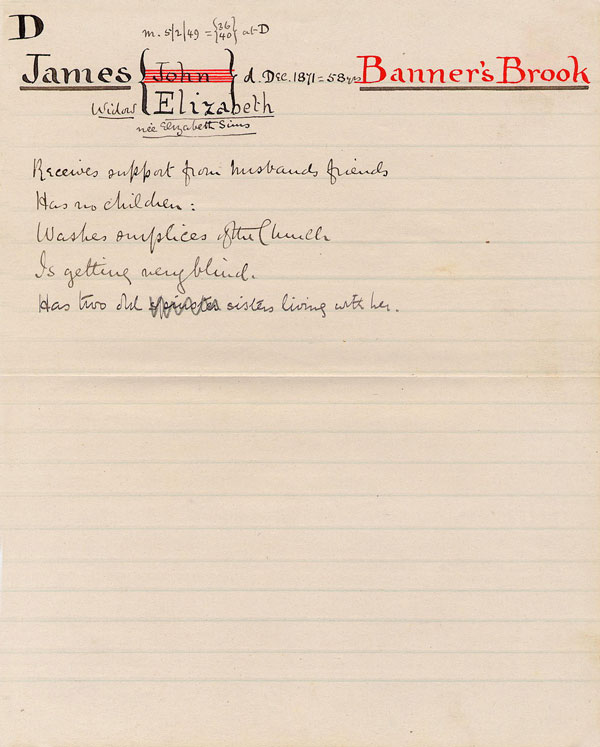 D
m. 5/2/49 = {36 40} at D
James { John } d. Dec. 1871 = 58 yrs Banner's Brook
Widow Elizabeth
née Elizabeth Sims
Receives support from husbands friends
Has no children:
Washes surplices of the Church
Is getting very blind.
Has two old sisters living with her.